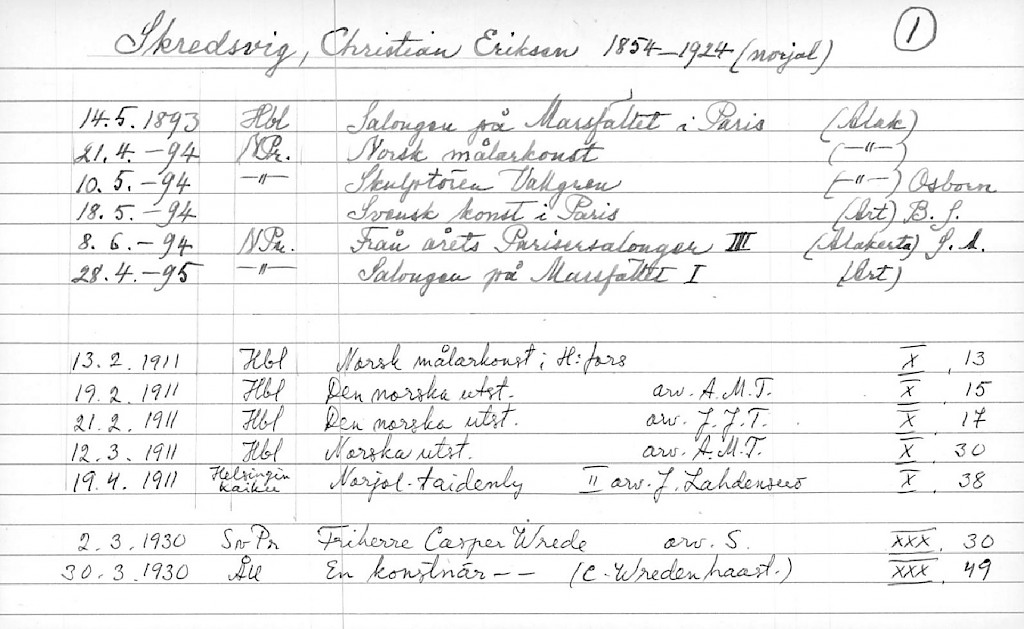 Skredsvig, Christian Erikson 1854-1924 (norjal) 1
14.5.1893 Hbl Salongen på Marsfältet i Paris (Alak)
21.4.-94 NPr. Norsk målarkonst (-"-)
10.5.-94 -"- Skulptören Vallgren (-"-) Osborn
18.5.-94 Svensk konst i Paris (Art) B. S.
8.6.-94 NPr. Från årets Parisersalonger III (Alakerta) S. A.
28.4.-95 -"- Salongen på Marsfältet I (Art)
13.2.1911 Hbl Norsk målarkonst i H:fors X, 13
19.2.1911 Hbl Den norska utst. arv. A.M.T. X, 15
21.2.1911 Hbl Den norska utst. arv. J.J.T. X, 17
12.3.1911 Hbl Norska utst. arv. A.M.T. X, 30
19.4.1911 Helsingin Kaiku Norjal. taidenly II arv. J. Lahdensuo X, 38
2.3.1930 Sv Pr Friherre Casper Wrede arv. S. XXX, 30
30.3.1930 ÅU En konstnär -- (C. Wreden haast.) XXX, 49